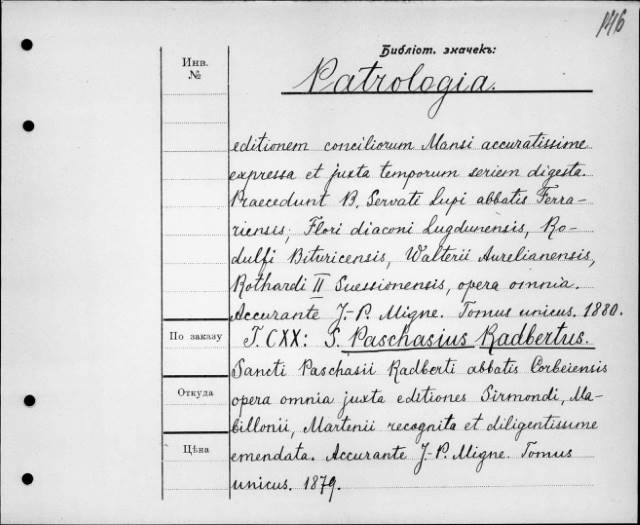 146
Библіот. значекъ:
Инв.
№
Patrologia.
editionem conciliorum Mansi accuratissime
expressa et juxta temporum seriem digesta.
Praecedunt B. Servati Lupi abbatis Ferra-
riensis, Flori diaconi Lugdunensis, Ro-
dulfi Bituricensis, Walterii Aurelianensis,
Rothardi II Suessionensis, opera omnia.
Accurante J.-P. Migne. Tomus unicus. 1880.
По заказу
T. CXX: S. Paschasius Radbertus.
Sancti Paschasii Radberti abbatis Corbeiensis
Откуда
opera omnia juxta editiones Sirmondi, Ma-
billonii, Martenii recognita et diligentissime
Цѣна
emendata. Accurante J.-P. Migne. Tomus
unicus. 1879.